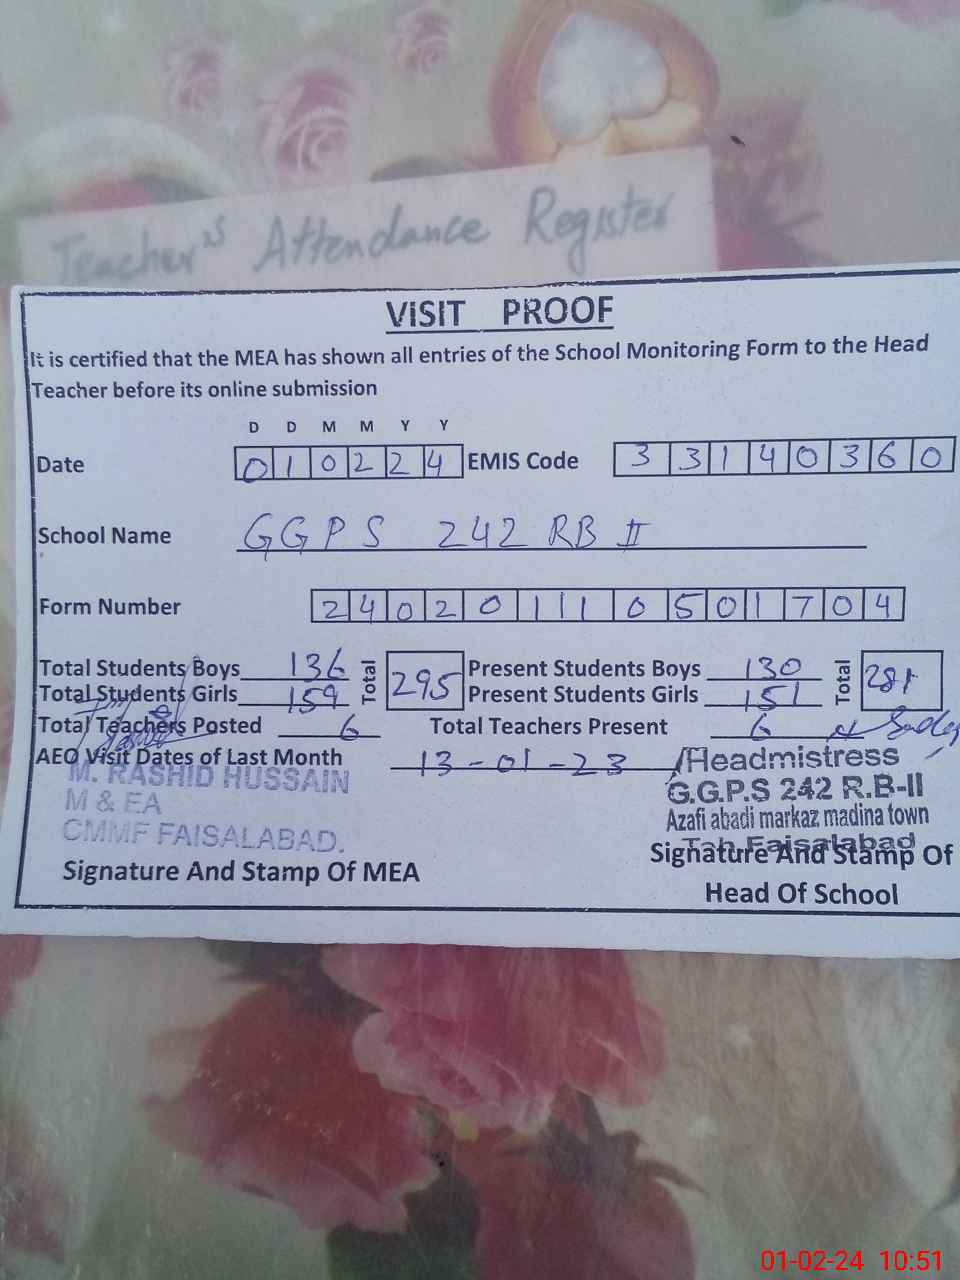 Teacher's Attendance Register
VISIT PROOF
It is certified that the MEA has shown all entries of the School Monitoring Form to the Head
Teacher before its online submission
D D M M Y Y
Date 010224 EMIS Code 33140360
School Name GGPS 242 RB II
Form Number 240201110501704
Total Students Boys 136 Total 295 Present Students Boys 130 Total 281
Total Students Girls 159 Present Students Girls 151
Total Teachers Posted 6 Total Teachers Present 6
AEO Visit Dates of Last Month 13-01-23
M. RASHID HUSSAIN
M & EA
CMMF FAISALABAD.
Signature And Stamp Of MEA
Headmistress
G.G.P.S 242 R.B-II
Azafi abadi markaz madina town
Teh Faisalabad
Signature And Stamp Of
Head Of School
01-02-24 10:51